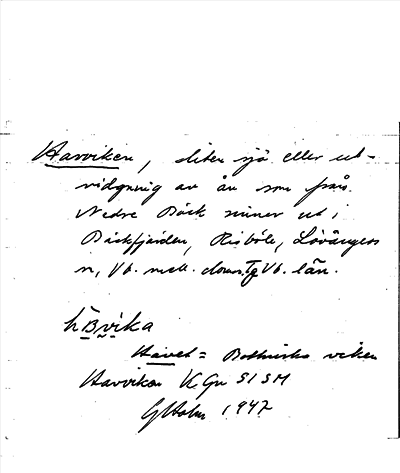 Havviken, liten sjö eller ut-
vidgning av ån som från
Nedre Bäck rinner ut i
Bäckfjärden, Risböle, Lövångers
sn, Vb. mell. domsg Vb. län.
Havet = Bottniska viken
Havviken K Gn 51 SM
G Holm 1947